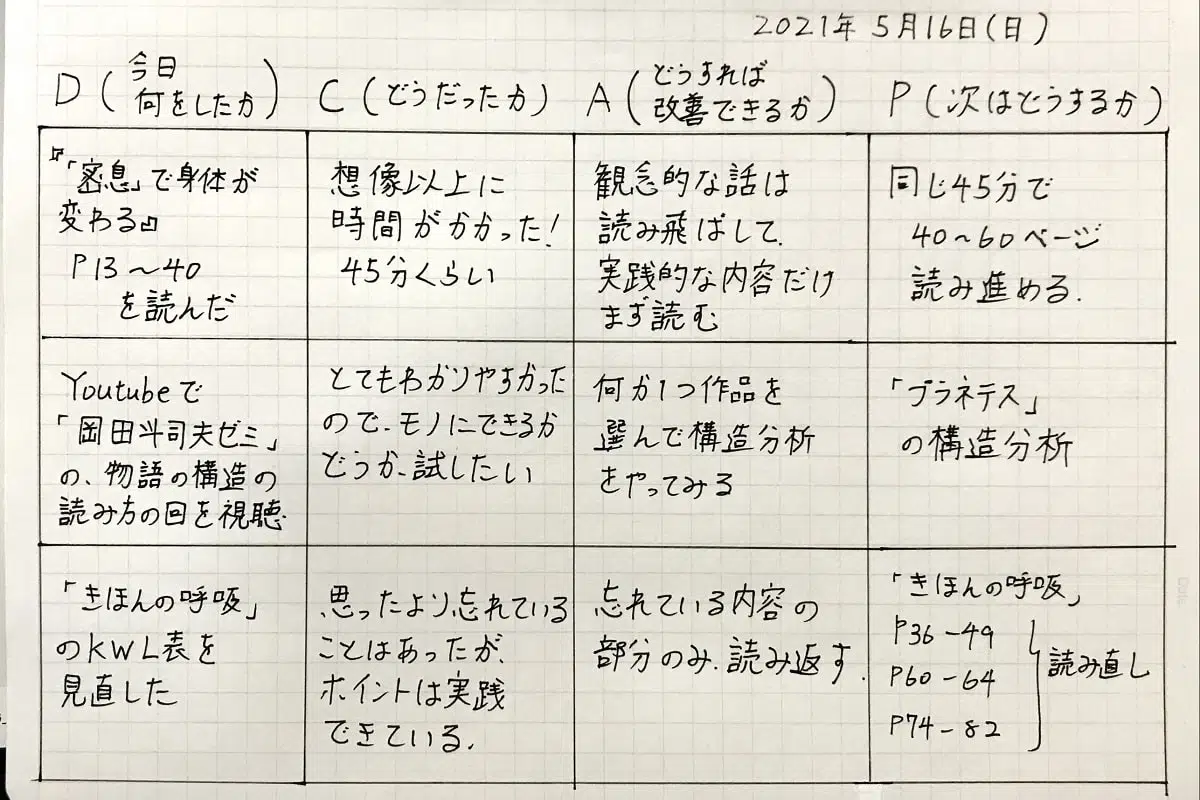 2021年 5月16日(日)
D (今日何をしたか)
C (どうだったか)
A (どうすれば改善できるか)
P (次はどうするか)
『「密息」で身体が
変わる』
P13〜40
を読んだ
想像以上に
時間がかかった!
45分くらい
観念的な話は
読み飛ばして、
実践的な内容だけ
まず読む
同じ45分で
40〜60ページ
読み進める.
Youtubeで
「岡田斗司夫ゼミ」
の、物語の構造の
読み方の回を視聴
とてもわかりやすかった
ので、モノにできるか
どうか、試したい
何か1つ作品を
選んで構造分析
をやってみる
「プラネテス」
の構造分析
「きほんの呼吸」
のKWL表を
見直した
思ったより忘れている
ことはあったが、
ポイントは実践
できている.
忘れている内容の
部分のみ、読み返す.
「きほんの呼吸」
P36-49
P60-64
P74-82
読み直し